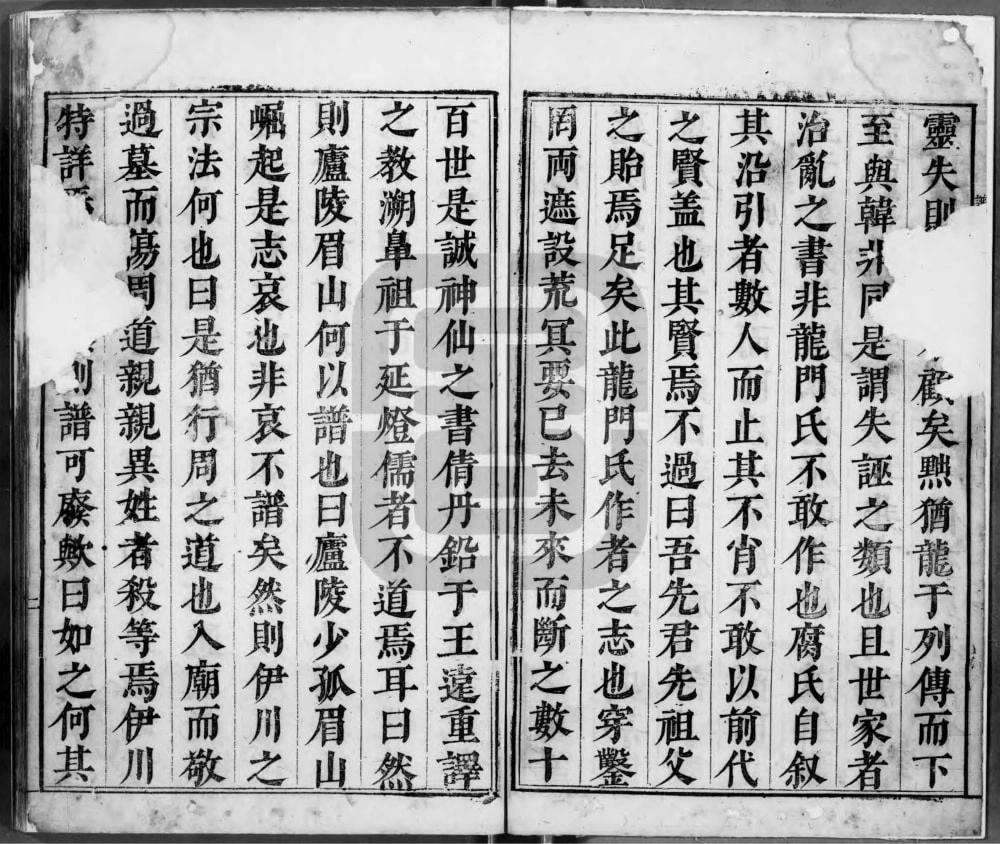 靈失則歡矣㸃猶龍于列傳而下
至與韓非同是謂失誣之類也且世家者
治亂之書非龍門氏不敢作也腐氏自叙
其沿引者數人而止其不肖不敢以前代
之賢盖也其賢焉不過曰吾先君先祖父
之貽焉足矣此龍門氏作者之志也穿鑿
罔両遮設荒冥要已去未來而斷之數十
百世是誠神仙之書倩丹鉛于王遠重譯
之教溯鼻祖于延燈儒者不道焉耳曰然
則廬陵眉山何以譜也曰廬陵少孤眉山
崛起是志哀也非哀不譜矣然則伊川之
宗法何也曰是猶行周之道也入廟而敬
過墓而傷周道親親異姓者殺等焉伊川
特詳則譜可廢歟曰如之何其